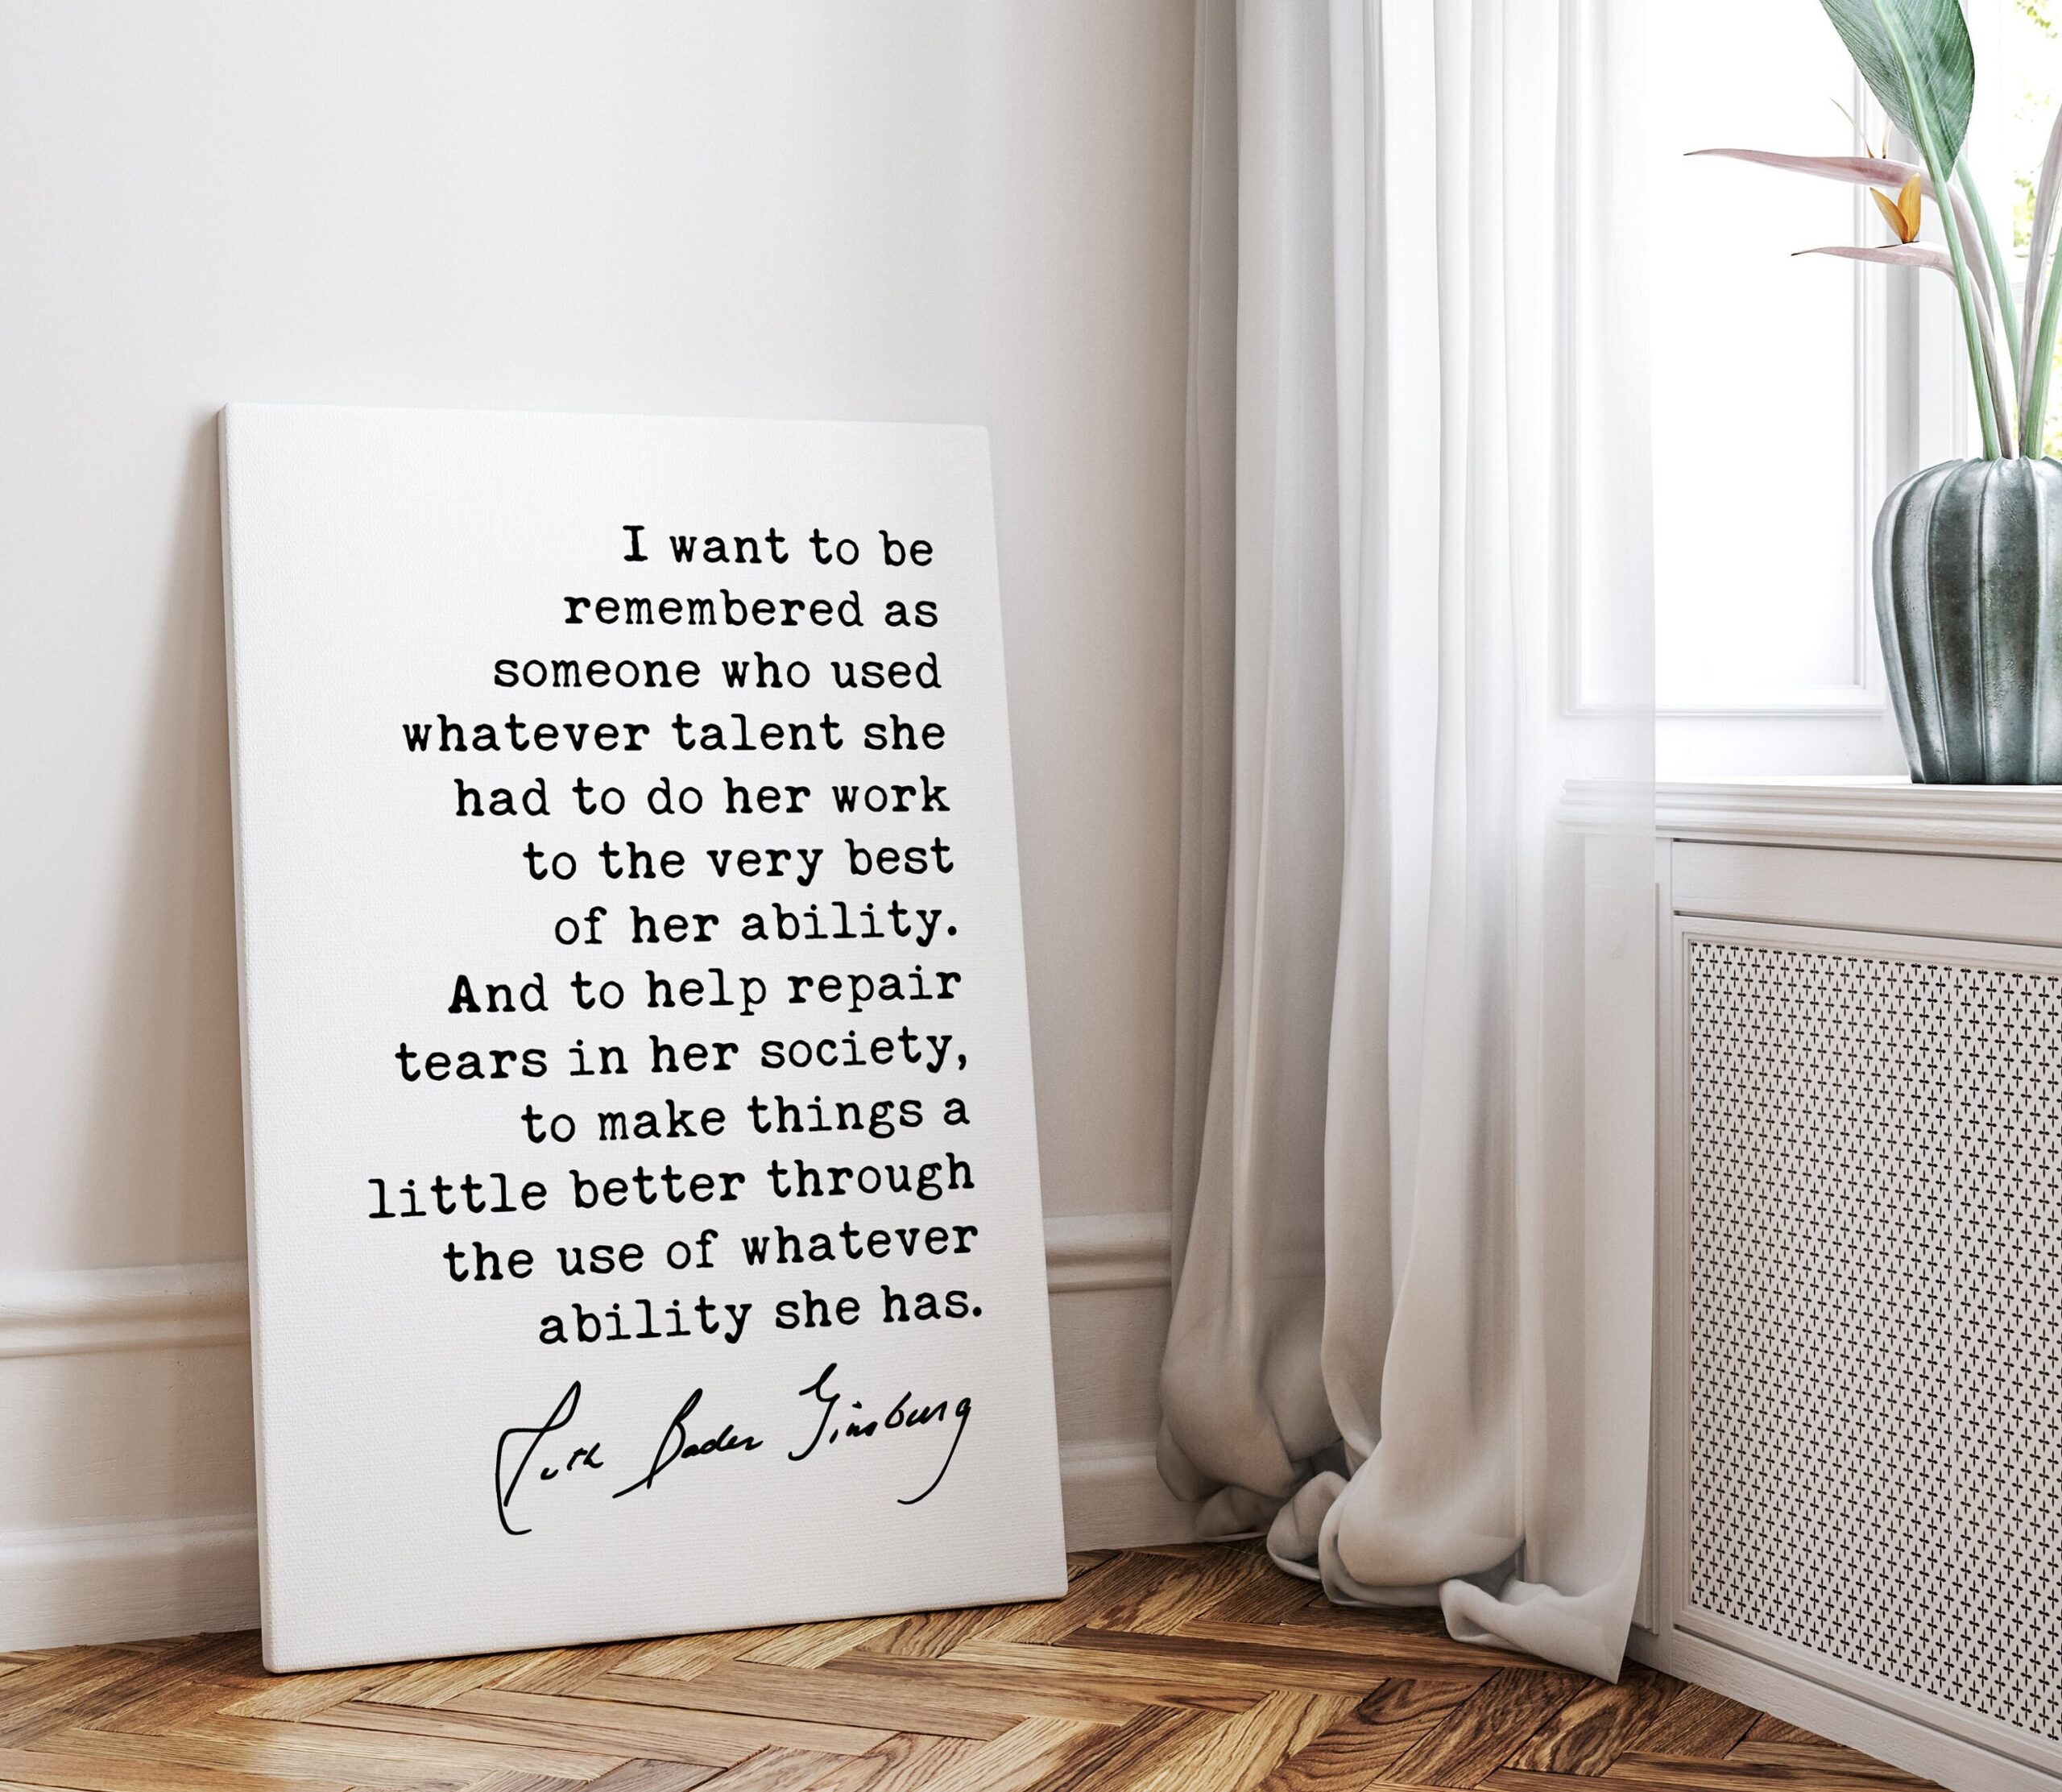 I want to be
remembered as
someone who used
whatever talent she
had to do her work
to the very best
of her ability.
And to help repair
tears in her society,
to make things a
little better through
the use of whatever
ability she has.
Ruth Bader Ginsburg